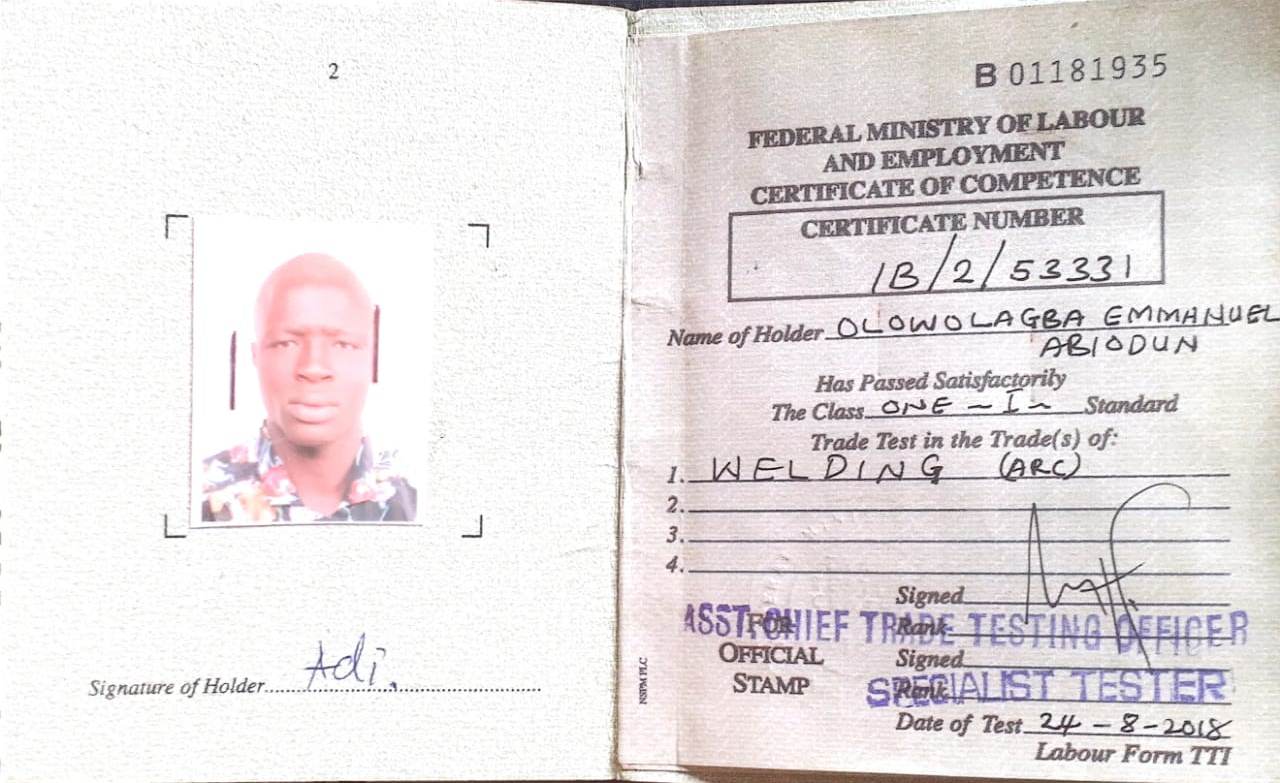 2
Adi.
Signature of Holder
B 01181935
FEDERAL MINISTRY OF LABOUR
AND EMPLOYMENT
CERTIFICATE OF COMPETENCE
CERTIFICATE NUMBER
1B/2/53331
Name of Holder OLOWOLAGBA EMMANUEL
ABIODUN
Has Passed Satisfactorily
The Class ONE - I - Standard
Trade Test in the Trade(s) of:
1. WELDING (ARC)
2.
3.
4.
Signed
ASST. CHIEF TRADE TESTING OFFICER
FOR Rank
OFFICIAL Signed
STAMP Rank
SPECIALIST TESTER
Date of Test 24-8-2018
Labour Form TTI
NSPM PLC